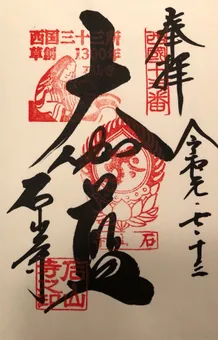 奉拝
令和元・七・十三
西國十三番
西国三十三所
草創1300年
大伽藍
石
石山寺
石山
寺之印